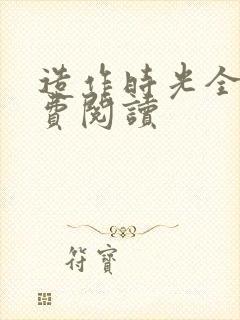 造作時光全
費閱讀
符寶